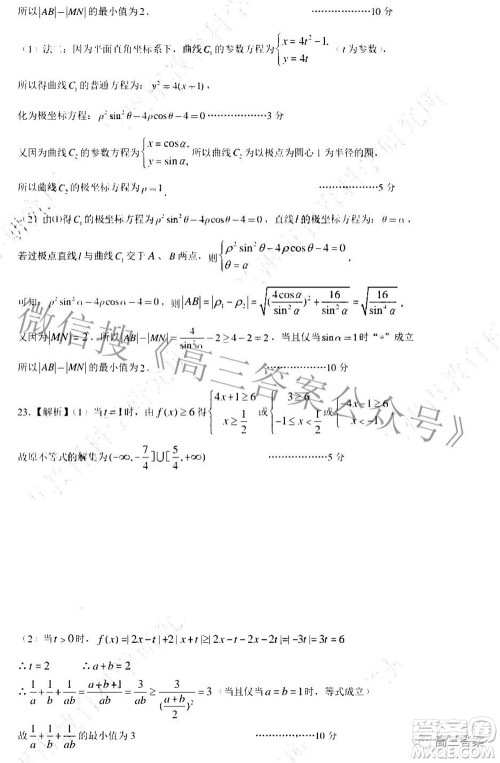 所以|AB|-|MN|的最小值为2. ………………10分
(1) 法二：因为平面直角坐标系下，曲线C₁的参数方程为{x=4t²-1, y=4t (t为参数)，
所以得曲线C₁的普通方程为：y²=4(x+1)，
化为极坐标方程：ρ²sin²θ-4ρcosθ-4=0 ………………3分
又因为曲线C₂的参数方程为{x=cosα, y=sinα 所以曲线C₂为以极点为圆心1为半径的圆，
所以曲线C₂的极坐标方程为ρ=1. ………………5分
(2) 由(1)得C₁的极坐标方程为ρ²sin²θ-4ρcosθ-4=0，直线l的极坐标方程为：θ=α，
若过极点直线l与曲线C₁交于A、B两点，则{ρ²sin²θ-4ρcosθ-4=0 θ=α，
可知：ρ²sin²α-4ρcosα-4=0，则|AB|=|ρ₁-ρ₂|=√((4cosα/sin²α)²+16/sin²α)=√(16/sin⁴α)，
又因为|MN|=2，所以|AB|-|MN|=4/sin²α-2≥4-2=2，当且仅当sinα=1时“=”成立
所以|AB|-|MN|的最小值为2. ………………10分
23.【解析】(1) 当t=1时，由f(x)≥6得{4x+1≥6 x≥1/2 或{3≥6 -1≤x<1/2 或{-4x-1≥6
故原不等式的解集为(-∞,-7/4]∪[5/4,+∞) ………………5分
(2) 当t>0时，f(x)=|2x-t|+2|x+t|≥|2x-t-2x-2t|=|-3t|=3t=6
∴t=2 ∴a+b=2
∴1/a+1/b+1/ab=(a+b+1)/ab=3/ab≥3/((a+b)/2)²=3 (当且仅当a=b=1时，等式成立)
故1/a+1/b+1/ab的最小值为3 ………………10分
微信搜《高三答案公众号》
高三答案